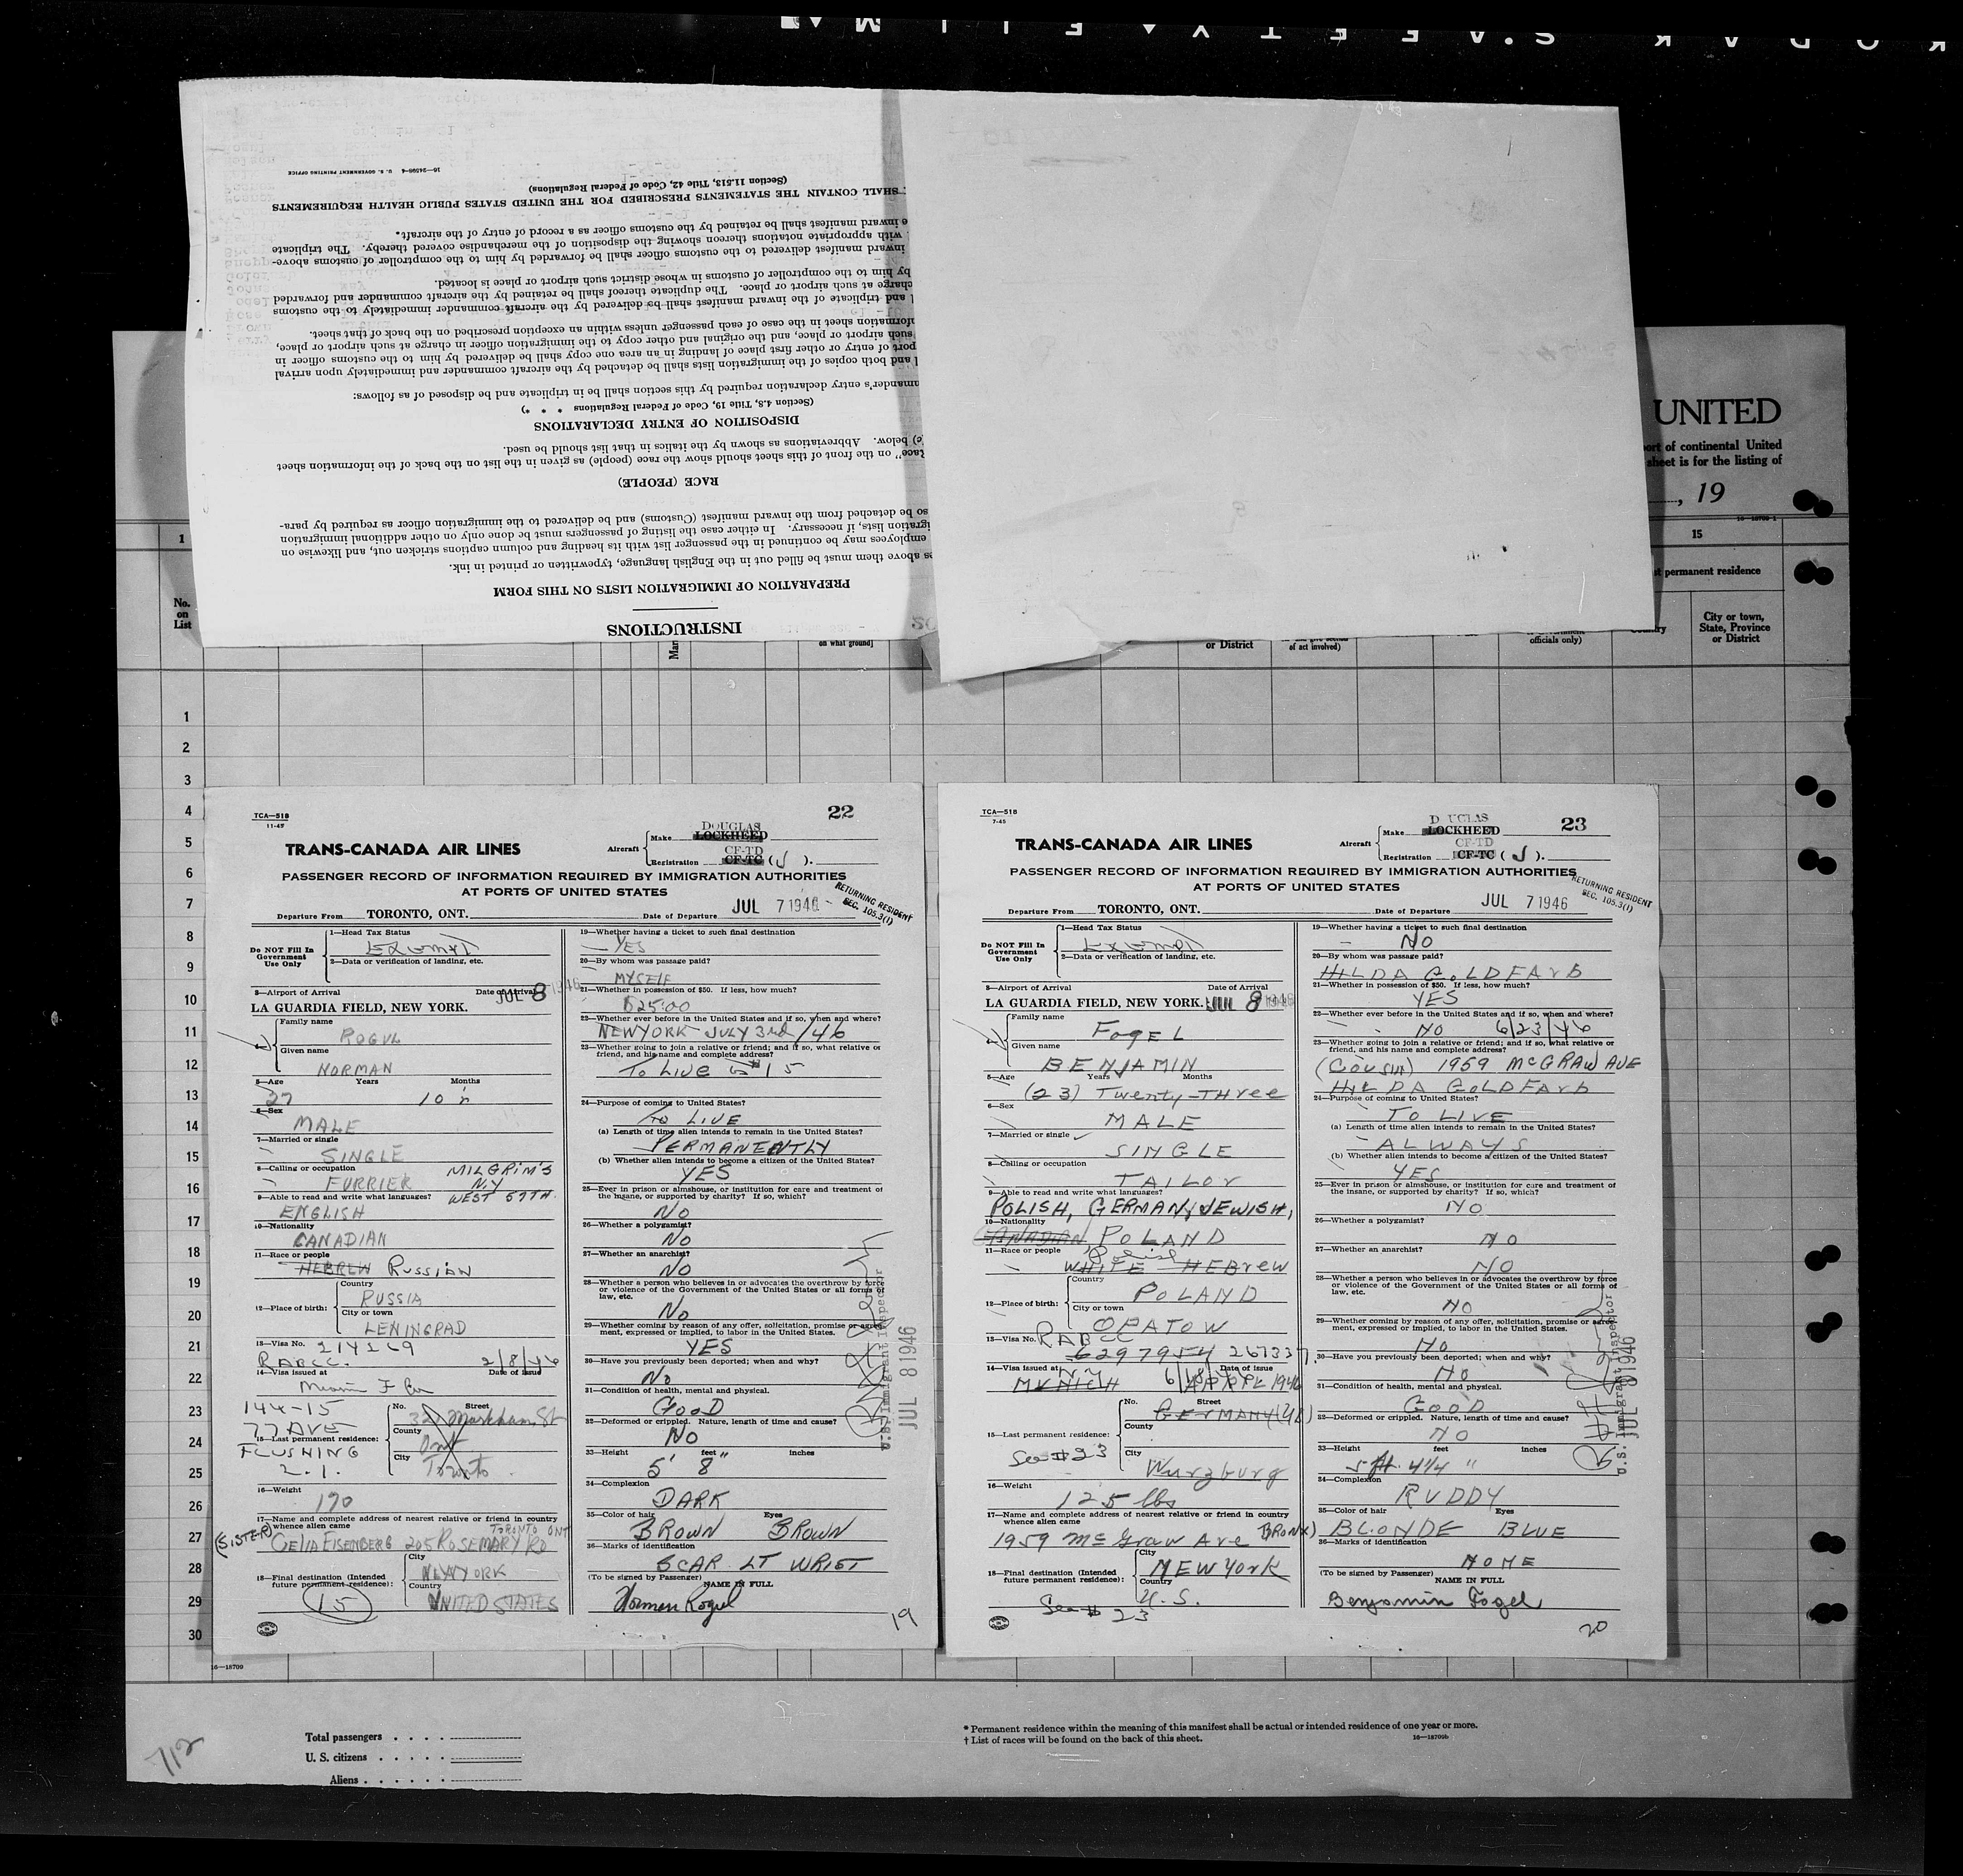 KODAK S'AFETY FILM
16—24598-4 U. S. GOVERNMENT PRINTING OFFICE
(Section 11.513, Title 42, Code of Federal Regulations)
SHALL CONTAIN THE STATEMENTS PRESCRIBED FOR THE UNITED STATES PUBLIC HEALTH REQUIREMENTS
e inward manifest shall be retained by the customs officer as a record of entry of the aircraft.*
with appropriate notations thereon showing the disposition of the merchandise covered thereby. The triplicate
inward manifest delivered to the customs officer shall be forwarded by him to the comptroller of customs above-
by him to the comptroller of customs in whose district such airport or place is located.
charge at such airport or place. The duplicate thereof shall be retained by the aircraft commander and forwarded
l and triplicate of the inward manifest shall be delivered by the aircraft commander immediately to the customs
formation sheet in the case of each passenger unless within an exception prescribed on the back of that sheet.
such airport or place, and the original and other copy to the immigration officer in charge at such airport or place,
port of entry or other first place of landing in an area one copy shall be delivered by him to the customs officer in
l and both copies of the immigration lists shall be detached by the aircraft commander and immediately upon arrival
mmander's entry declaration required by this section shall be in triplicate and be disposed of as follows:
(Section 4.8, Title 19, Code of Federal Regulations * * *)
DISPOSITION OF ENTRY DECLARATIONS
(c) below. Abbreviations as shown by the italics in that list should be used.
Race" on the front of this sheet should show the race (people) as given in the list on the back of the information sheet
RACE (PEOPLE)
so be detached from the inward manifest (Customs) and be delivered to the immigration officer as required by para-
igration lists, if necessary. In either case the listing of passengers must be done only on other additional immigration
employees may be continued in the passenger list with its heading and column captions stricken out, and likewise on
es above them must be filled out in the English language, typewritten or printed in ink.
PREPARATION OF IMMIGRATION LISTS ON THIS FORM
INSTRUCTIONS
UNITED
ort of continental United
sheet is for the listing of
, 19
16—18709-1
1
15
st permanent residence
No.
on
List
Mar
on what ground]
or District
of act involved)
officials only)
City or town,
State, Province
or District
1
2
3
4
5
6
7
8
9
10
11
12
13
14
15
16
17
18
19
20
21
22
23
24
25
26
27
28
29
30
TCA—518
11-45
22
TRANS-CANADA AIR LINES
Aircraft
Make DOUGLAS LOCKHEED
Registration CF-TD CF-TC (J).
PASSENGER RECORD OF INFORMATION REQUIRED BY IMMIGRATION AUTHORITIES
AT PORTS OF UNITED STATES
RETURNING RESIDENT
SEC. 105.3(1)
Departure From TORONTO, ONT. Date of Departure JUL 7 1946
Do NOT Fill In
Government
Use Only
1—Head Tax Status
Exempt
2—Data or verification of landing, etc.
3—Airport of Arrival Date of Arrival
LA GUARDIA FIELD, NEW YORK. JUL 8 1946
Family name
ROGUL
Given name
NORMAN
5—Age Years Months
27 10
6—Sex
MALE
7—Married or single
SINGLE
8—Calling or occupation
FURRIER MILGRIM'S N.Y
9—Able to read and write what languages? WEST 57TH.
ENGLISH
10—Nationality
CANADIAN
11—Race or people
HEBREW RUSSIAN
12—Place of birth:
Country
RUSSIA
City or town
LENINGRAD
13—Visa No. 214269
RABCC. 2/8/46
14—Visa issued at Date of issue
Miami Fla
144-15
77 AVE
FLUSHING
L.I.
15—Last permanent residence:
No. Street
32 Markham St
County
Ont
City
Toronto
16—Weight
170
17—Name and complete address of nearest relative or friend in country
whence alien came
(SISTER) CELIA EISENBERG 205 ROSEMARY RD TORONTO ONT
18—Final destination (Intended
future permanent residence):
City
NEW YORK
Country
UNITED STATES
15
19—Whether having a ticket to such final destination
YES
20—By whom was passage paid?
MYSELF
21—Whether in possession of $50. If less, how much?
$25.00
22—Whether ever before in the United States and if so, when and where?
NEW YORK JULY 3rd/46
23—Whether going to join a relative or friend; and if so, what relative or
friend, and his name and complete address?
To LIVE # 15
24—Purpose of coming to United States?
TO LIVE
(a) Length of time alien intends to remain in the United States?
PERMANENTLY
(b) Whether alien intends to become a citizen of the United States?
YES
25—Ever in prison or almshouse, or institution for care and treatment of
the insane, or supported by charity? If so, which?
NO
26—Whether a polygamist?
NO
27—Whether an anarchist?
NO
28—Whether a person who believes in or advocates the overthrow by force
or violence of the Government of the United States or all forms of
law, etc.
NO
29—Whether coming by reason of any offer, solicitation, promise or agree-
ment, expressed or implied, to labor in the United States.
YES
30—Have you previously been deported; when and why?
No
31—Condition of health, mental and physical.
GOOD
32—Deformed or crippled. Nature, length of time and cause?
NO
33—Height feet inches
5' 8"
34—Complexion
DARK
35—Color of hair Eyes
BROWN BROWN
36—Marks of identification
SCAR LT WRIST
(To be signed by Passenger) NAME IN FULL
Norman Rogul
19
U.S. Immigrant Inspector
JUL 8 1946
TCA—518
7-45
23
TRANS-CANADA AIR LINES
Aircraft
Make DOUGLAS LOCKHEED
Registration CF-TD CF-TC (J).
PASSENGER RECORD OF INFORMATION REQUIRED BY IMMIGRATION AUTHORITIES
AT PORTS OF UNITED STATES
RETURNING RESIDENT
SEC. 105.3(1)
Departure From TORONTO, ONT. Date of Departure JUL 7 1946
Do NOT Fill In
Government
Use Only
1—Head Tax Status
Exempt
2—Data or verification of landing, etc.
3—Airport of Arrival Date of Arrival
LA GUARDIA FIELD, NEW YORK. JUL 8 1946
Family name
FogEL
Given name
BENJAMIN
5—Age Years Months
(23) Twenty-THree
6—Sex
MALE
7—Married or single
SINGLE
8—Calling or occupation
TAILOr
9—Able to read and write what languages?
POLISH, GERMAN, JEWISH,
10—Nationality
CANADIAN POLAND
11—Race or people
Polish
WHITE HEBrew
12—Place of birth:
Country
POLAND
City or town
OPATOW
13—Visa No. RABCC
6297954 267337
14—Visa issued at Date of issue
MUNICH N.Y. 6/18/ APPRL 1946
15—Last permanent residence:
See #23
No. Street
GERMANY
County
City
Wurzburg
16—Weight
125 lbs
17—Name and complete address of nearest relative or friend in country
whence alien came
1959 McGraw Ave BRONX)
18—Final destination (Intended
future permanent residence):
City
NEW YORK
Country
U.S.
See # 23
19—Whether having a ticket to such final destination
NO
20—By whom was passage paid?
HILDA GOLDFArb
21—Whether in possession of $50. If less, how much?
YES
22—Whether ever before in the United States and if so, when and where?
NO 6/23/46
23—Whether going to join a relative or friend; and if so, what relative or
friend, and his name and complete address?
(COUSIN) 1959 McGRAW AVE
HILDA GOLDFArb
24—Purpose of coming to United States?
TO LIVE
(a) Length of time alien intends to remain in the United States?
ALWAYS
(b) Whether alien intends to become a citizen of the United States?
YES
25—Ever in prison or almshouse, or institution for care and treatment of
the insane, or supported by charity? If so, which?
NO
26—Whether a polygamist?
NO
27—Whether an anarchist?
NO
28—Whether a person who believes in or advocates the overthrow by force
or violence of the Government of the United States or all forms of
law, etc.
NO
29—Whether coming by reason of any offer, solicitation, promise or agree-
ment, expressed or implied, to labor in the United States.
No
30—Have you previously been deported; when and why?
NO
31—Condition of health, mental and physical.
GOOD
32—Deformed or crippled. Nature, length of time and cause?
NO
33—Height feet inches
5 ft. 4 1/4 "
34—Complexion
RUDDY
35—Color of hair Eyes
BLONDE BLUE
36—Marks of identification
NONE
(To be signed by Passenger) NAME IN FULL
Benjamin Fogel
20
U.S. Immigrant Inspector
JUL 8 1946
16—18709
Total passengers
U. S. citizens
Aliens
712
* Permanent residence within the meaning of this manifest shall be actual or intended residence of one year or more.
† List of races will be found on the back of this sheet.
16—18709b